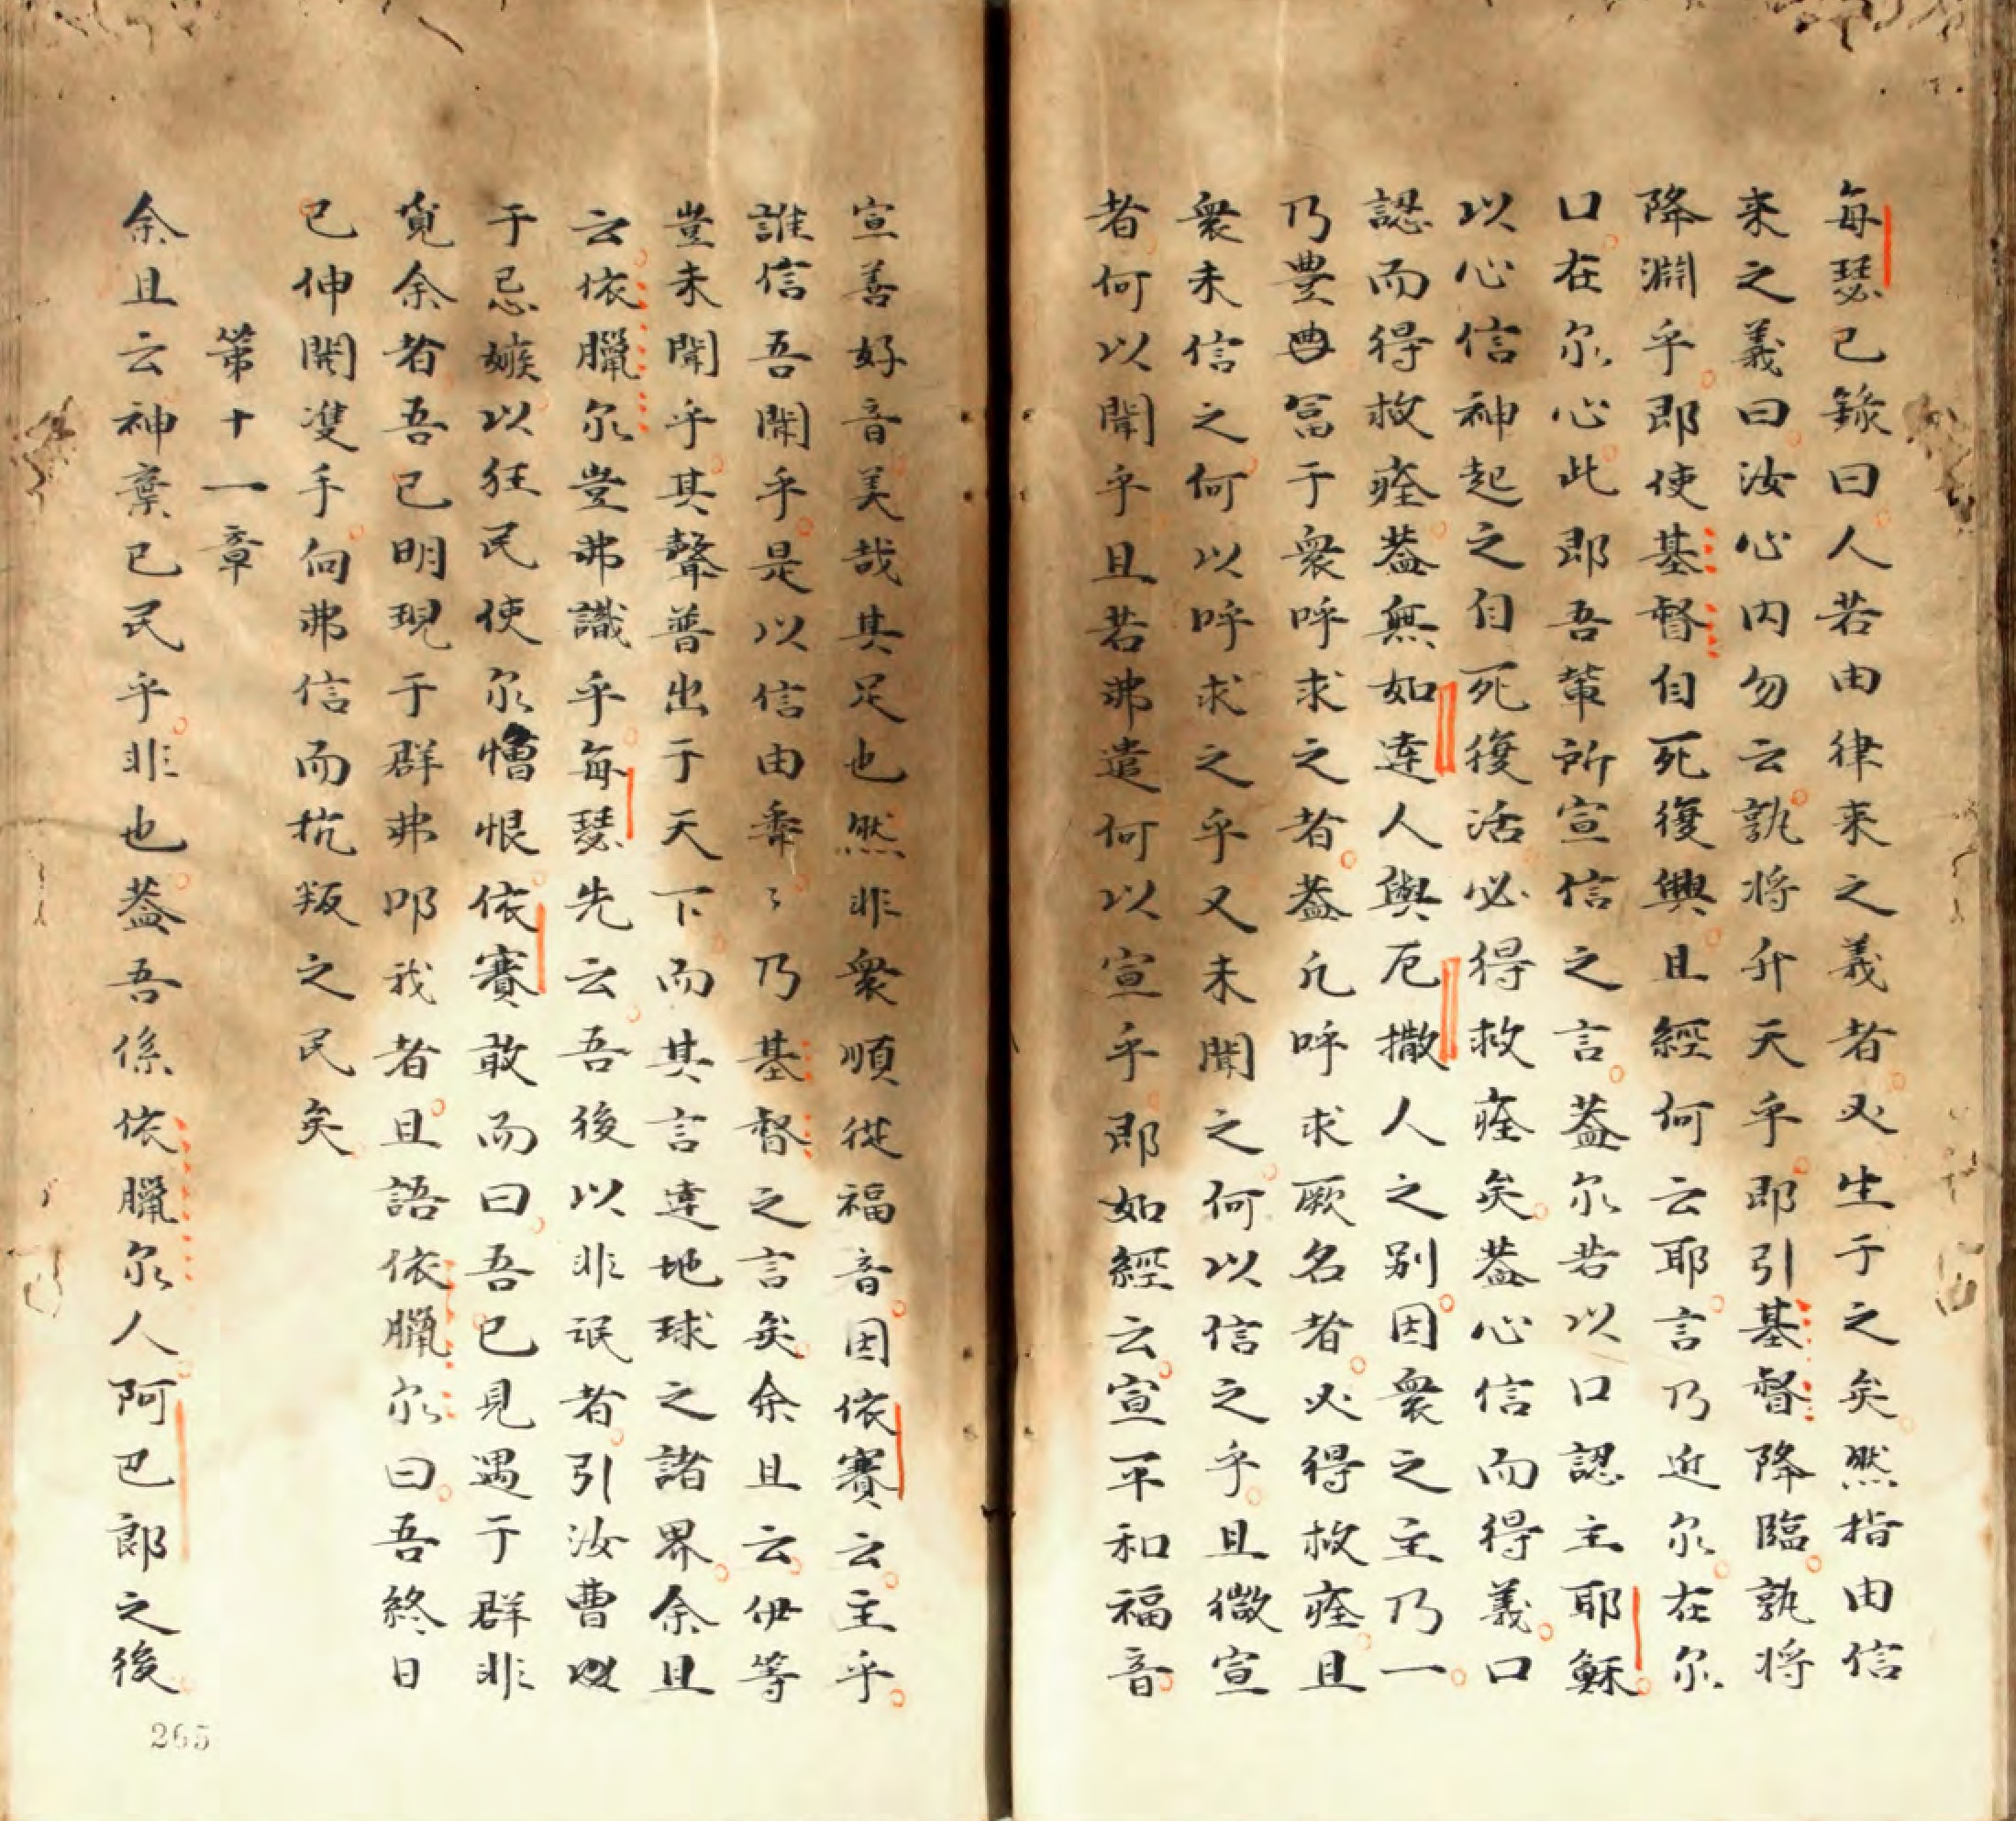 每瑟已錄曰人若由律来之義者必生于之矣然指由信
来之義曰汝心内勿云孰将升天乎即引基督降臨孰将
降淵乎即使基督自死復興且經何云耶言乃近尔在尔
口在尔心此即吾輩所宣信之言蓋尔若以口認主耶穌
以心信神起之自死復活必得救痊矣蓋心信而得義口
認而得救痊蓋無如達人與厄撒人之别因衆之主乃一
乃豊冨于衆呼求之者蓋凢呼求厥名者必得救痊且
衆未信之何以呼求之乎又未聞之何以信之乎且微宣
者何以聞乎且若弗遣何以宣乎即如經云宣平和福音
宣善好音美哉其足也然非衆順從福音因依賽云主乎
誰信吾聞乎是以信由聽〻乃基督之言矣余且云伊等
豈未聞乎其聲普出于天下而其言達地球之諸界余且
云依臘尔豈弗識乎每瑟先云吾後以非氓者引汝曹以
于忌嫉以狂民使尔憎恨依賽敢而曰吾已見遇于群非
覔余者吾已明現于群弗叩我者且語依臘尔曰吾終日
已伸開雙手向弗信而抗叛之民矣
第十一章
余且云神棄已民乎非也蓋吾係依臘尔人阿巴郎之後
265